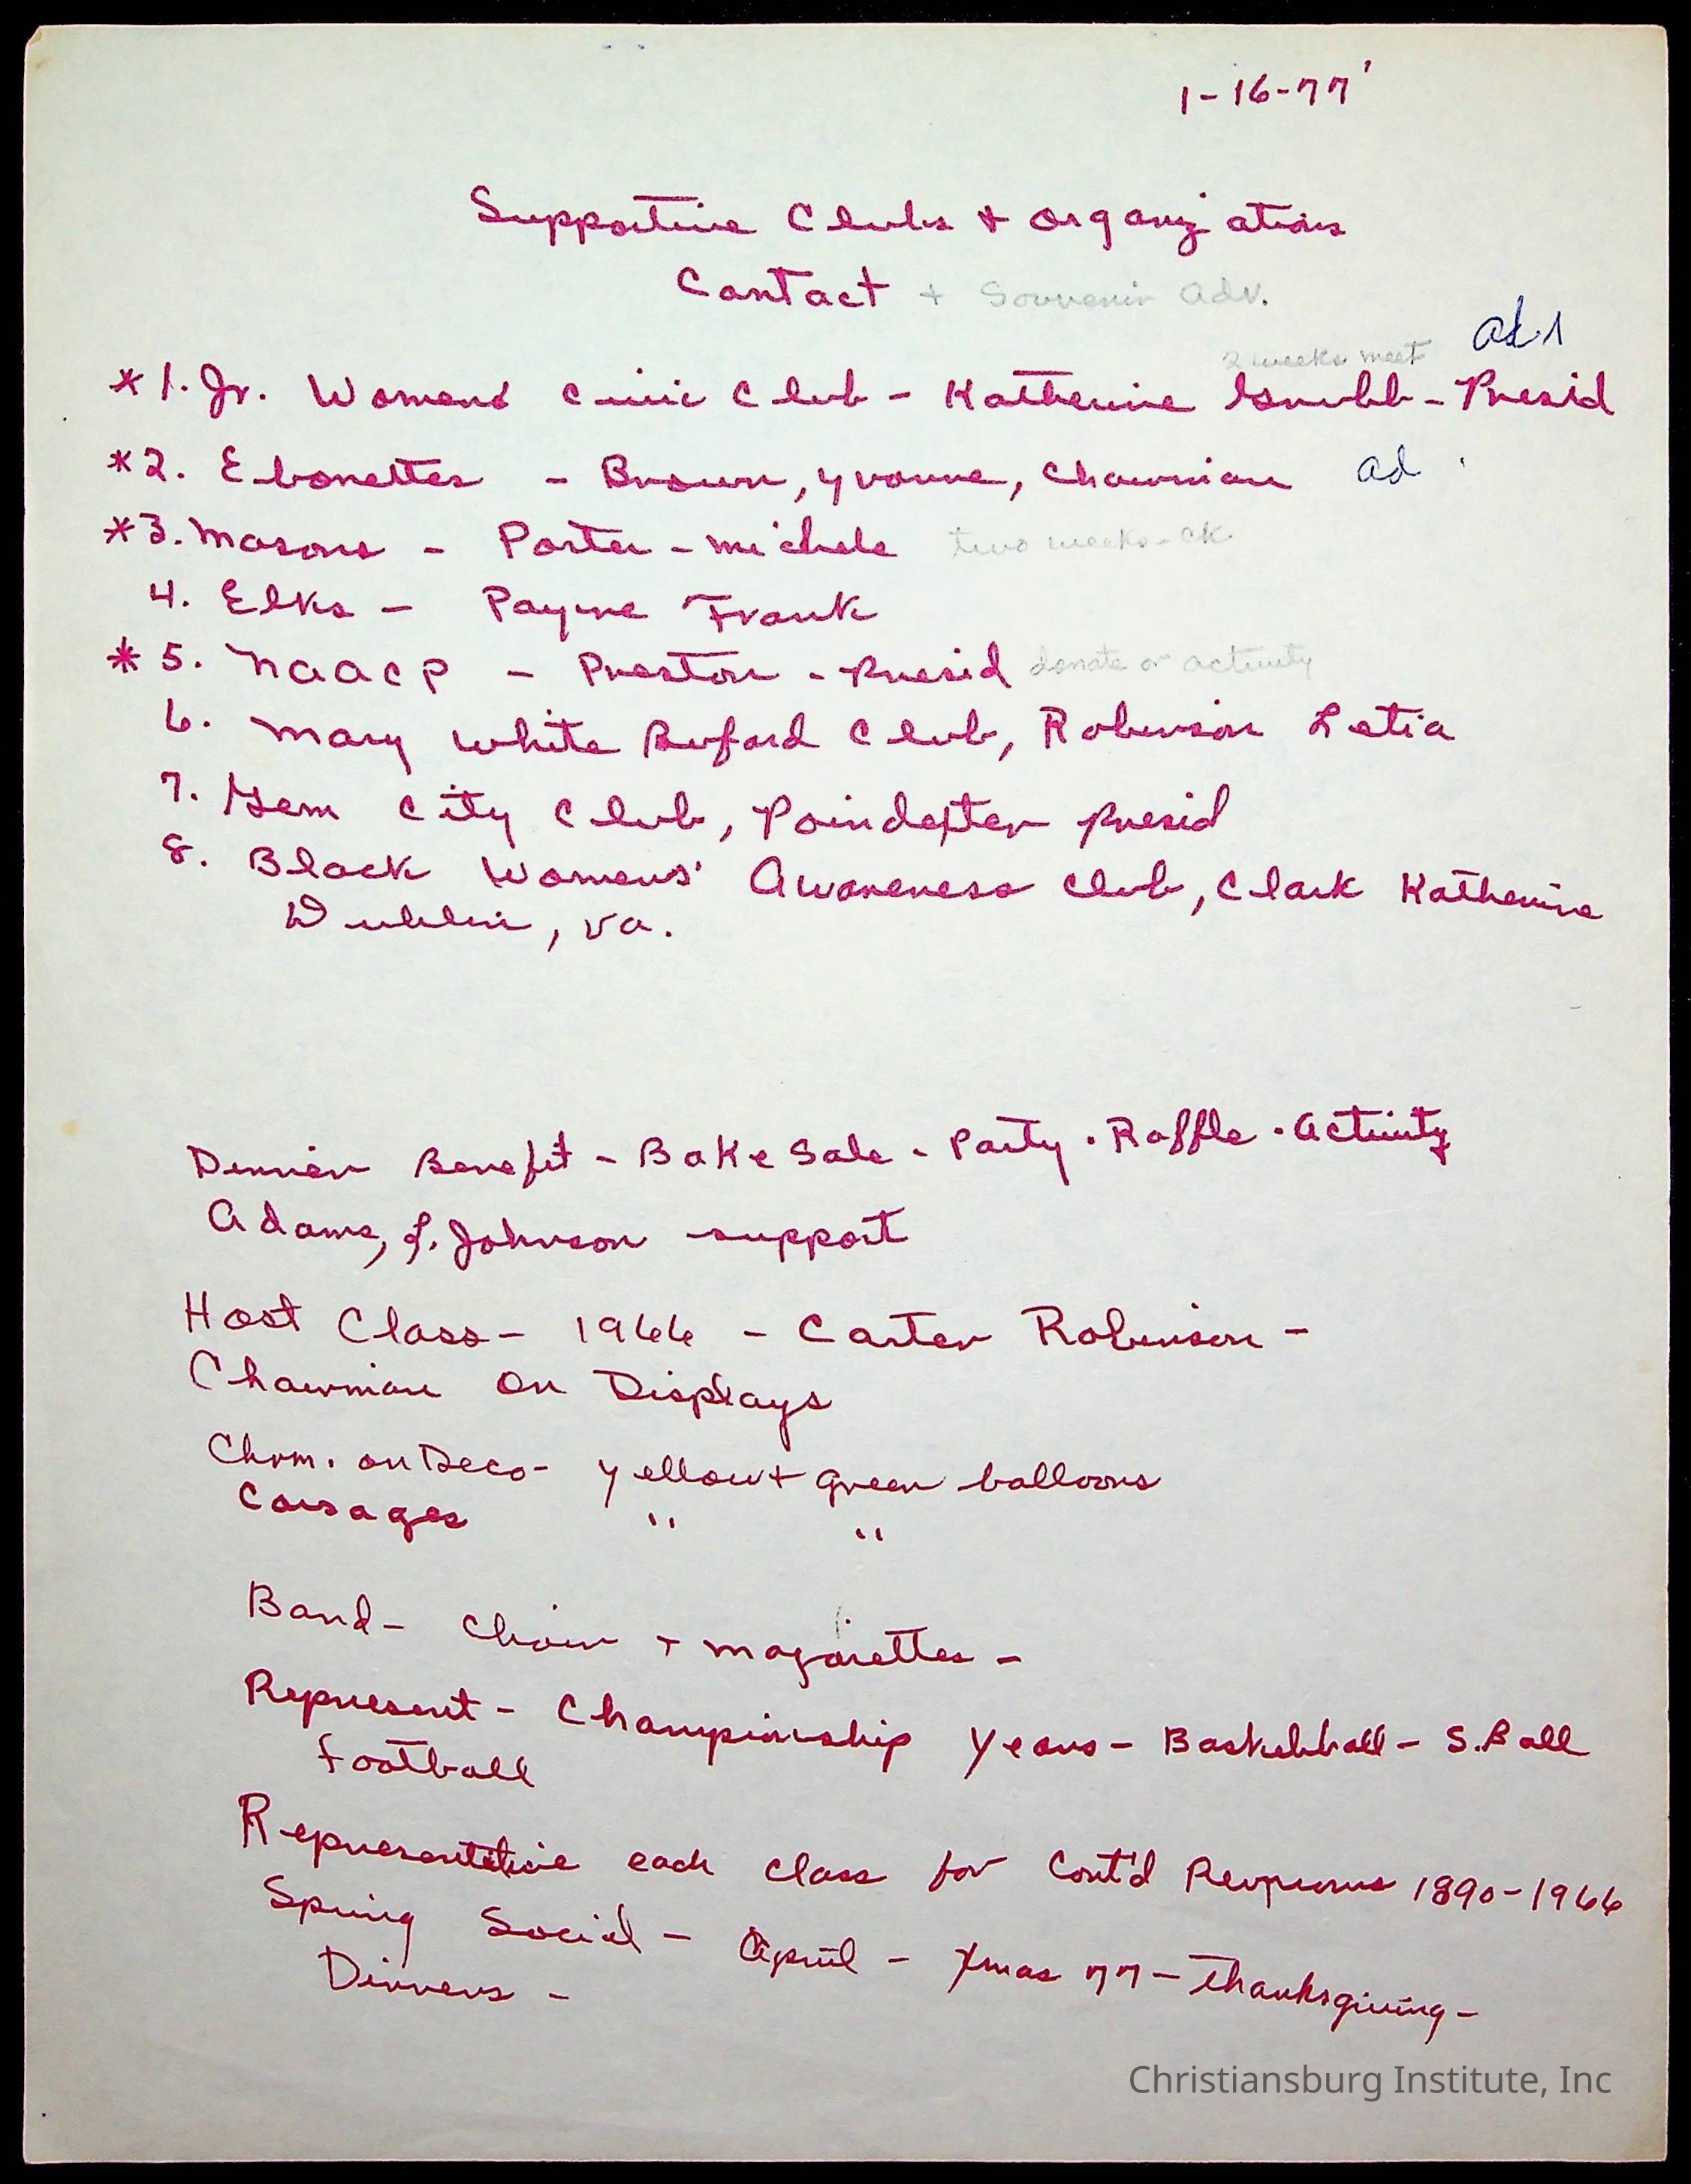 1-16-77'
Supportive Clubs + Organizations
Contact + Souvenir Adv.
2 weeks meet ad
*1. Jr. Womens Civic Club - Katherine Grubb - Presid
*2. Ebonettes - Brown, Yvonne, Chairman ad
*3. Masons - Porter - Michele two weeks - ck.
4. Elks - Payne Frank
*5. NAACP - Preston - Presid donate or activity
6. Mary White Buford Club, Robinson Letia
7. Gem City Club, Poindexter Presid
8. Black Womens' Awareness Club, Clark Katherine
Dublin, Va.
Dinner Benefit - Bake Sale - Party - Raffle - Activity
Adams, L. Johnson support
Host Class - 1966 - Carter Robinson -
Chairman on Displays
Chrm. on Deco - yellow + green balloons
Corsages " "
Band - Choir + majorettes -
Represent - Championship Years - Basketball - S. Ball
Football
Representative each class for Cont'd 1890-1966
Spring Social - April - Xmas 77 - Thanksgiving -
Dinners -
Christiansburg Institute, Inc